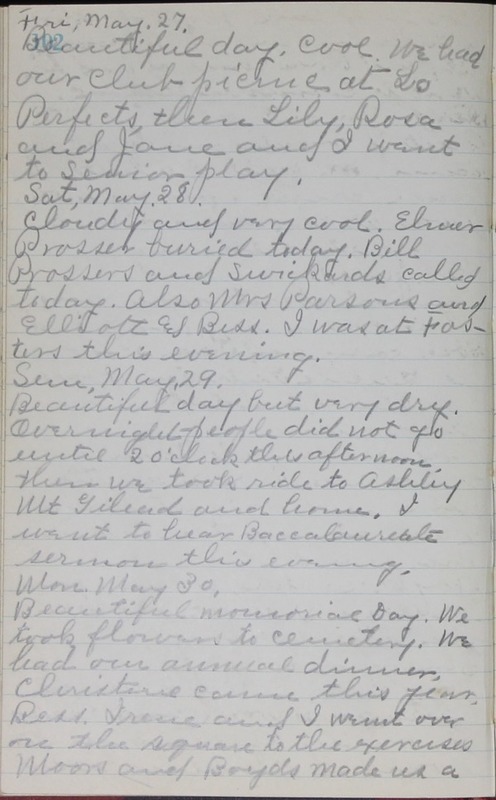 Fri, May. 27.
102
Beautiful day. Cool. We had
our club picnic at Lo
Perfects, then Lily, Rosa
and Jane and I went
to Senior play.
Sat, May. 28.
Cloudy and very cool. Elmer
Prosser buried today. Bill
Prossers and Swickards called
today. Also Mrs Parsons and
Elliott & Bess. I was at Fos-
ters this evening.
Sun, May. 29.
Beautiful day but very dry.
Overnight people did not go
until 2 o'clock this afternoon,
then we took ride to Ashley
Mt Gilead and home. I
went to hear Baccalaureate
sermon this evening.
Mon. May 30,
Beautiful memorial Day. We
took flowers to cemetery. We
had our annual dinner,
Christine came this year,
Bess. Irene and I went over
on the square to the exercises
Moors and Boyds made us a